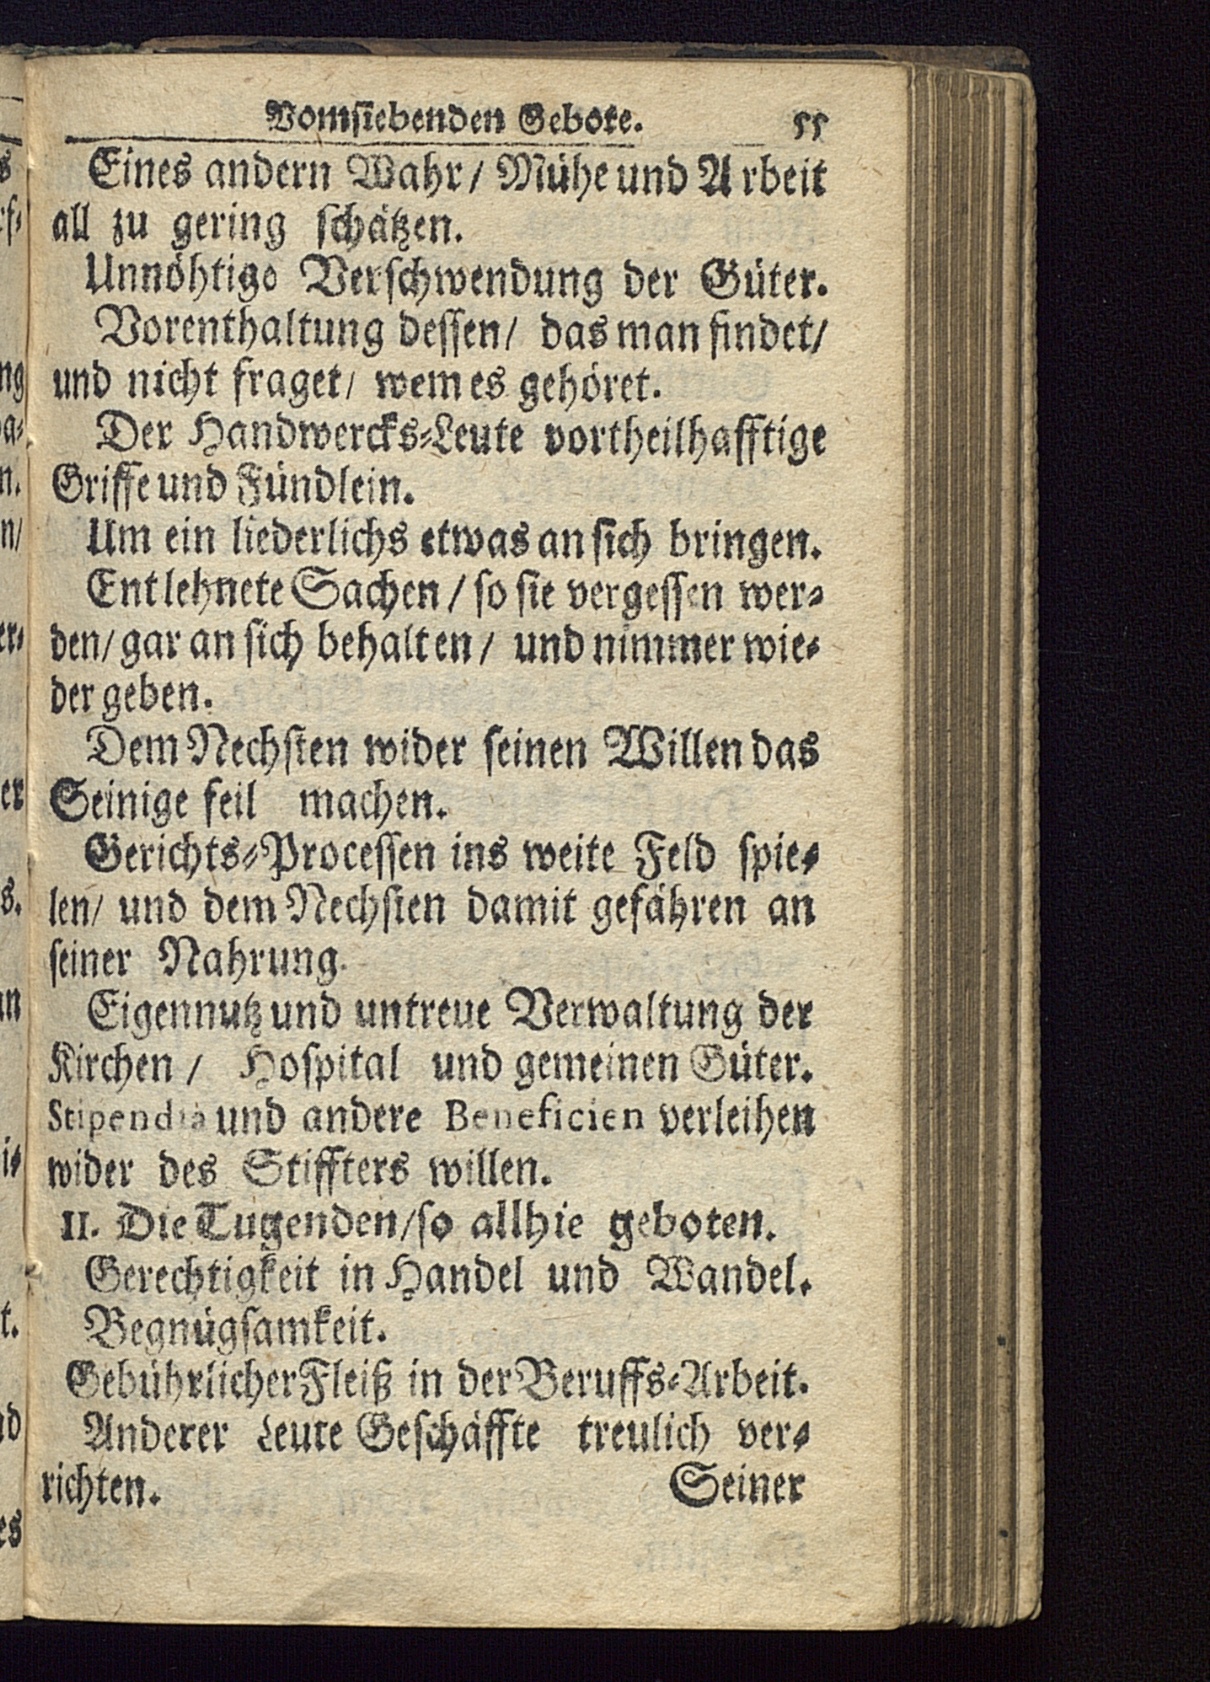 Vom siebenden Gebote. 55
Eines andern Wahr / Mühe und Arbeit
all zu gering schätzen.
Unnöhtige Verschwendung der Güter.
Vorenthaltung dessen / das man findet /
und nicht fraget / wem es gehöret.
Der Handwercks-Leute vortheilhafftige
Griffe und Fündlein.
Um ein liederlichs etwas an sich bringen.
Entlehnete Sachen / so sie vergessen wer-
den / gar an sich behalten / und nimmer wie-
der geben.
Dem Nechsten wider seinen Willen das
Seinige feil machen.
Gerichts-Processen ins weite Feld spie-
len / und dem Nechsten damit gefähren an
seiner Nahrung.
Eigennutz und untreue Verwaltung der
Kirchen / Hospital und gemeinen Güter.
Stipendia und andere Beneficien verleihen
wider des Stiffters willen.
II. Die Tugenden / so allhie geboten.
Gerechtigkeit in Handel und Wandel.
Begnügsamkeit.
Gebührlicher Fleiß in der Beruffs-Arbeit.
Anderer Leute Geschäffte treulich ver-
richten. Seiner